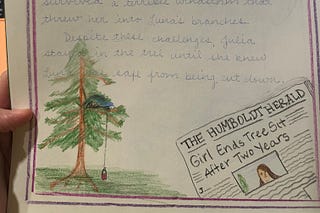 survived a terrible windstorm that
threw her into Luna's branches.
Despite these challenges, Julia
stayed in the tree until she knew
Luna was safe from being cut down.
THE HUMBOLDT HERALD
Girl Ends Tree Sit
After Two Years